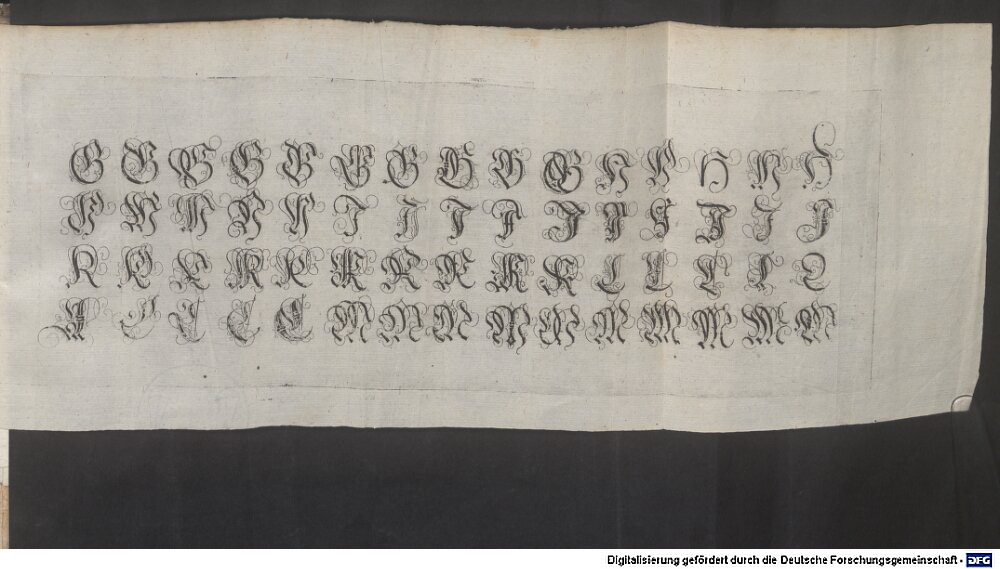 G G G G G G G G G G H H H H H
H H H H H I I I I I I I I I I
K K K K K K K K K K L L L L L
L L L L L M M M M M M M M M M
Digitalisierung gefördert durch die Deutsche Forschungsgemeinschaft - DFG